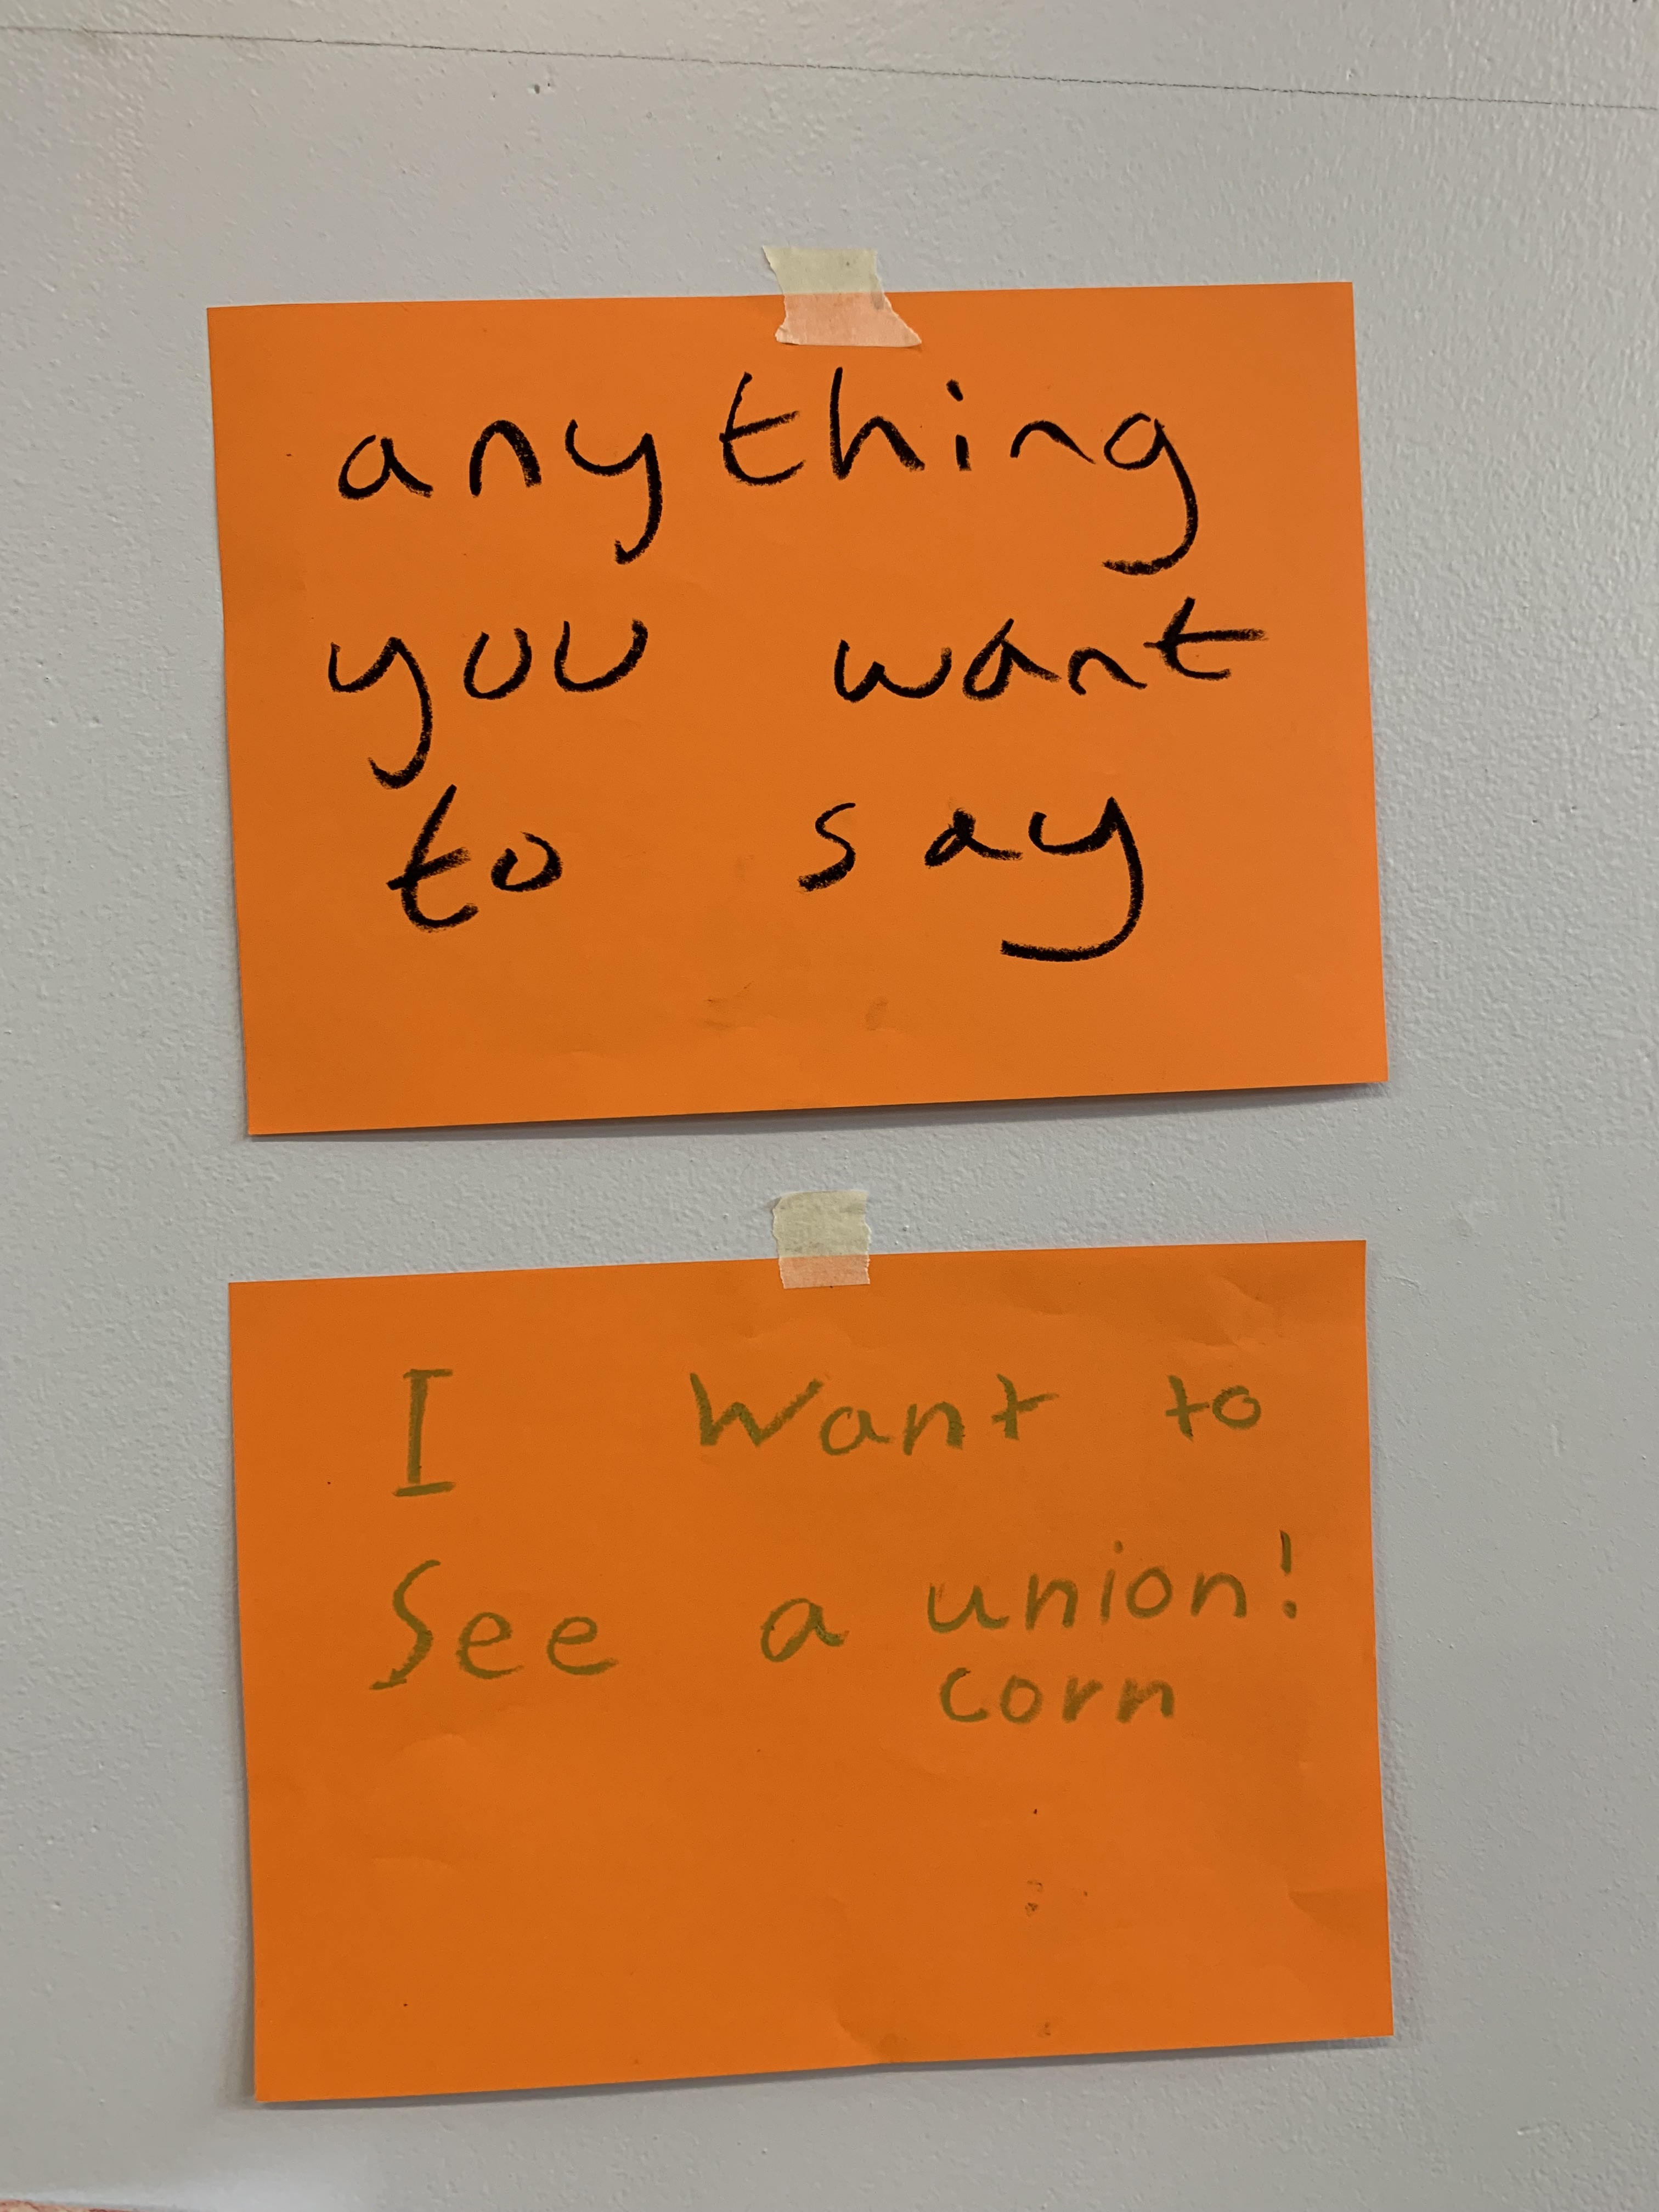 anything
you want
to say
I want to
See a union!
corn